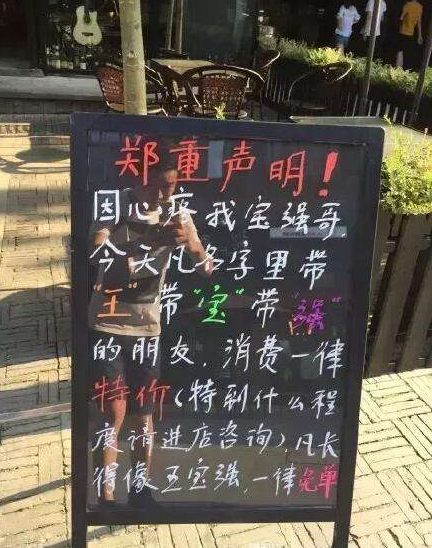 郑重声明！
因心疼我宝强哥
今天凡名字里带
"王"带"宝"带"强"
的朋友，消费一律
特价（特到什么程
度请进店咨询），凡长
得像王宝强，一律免单